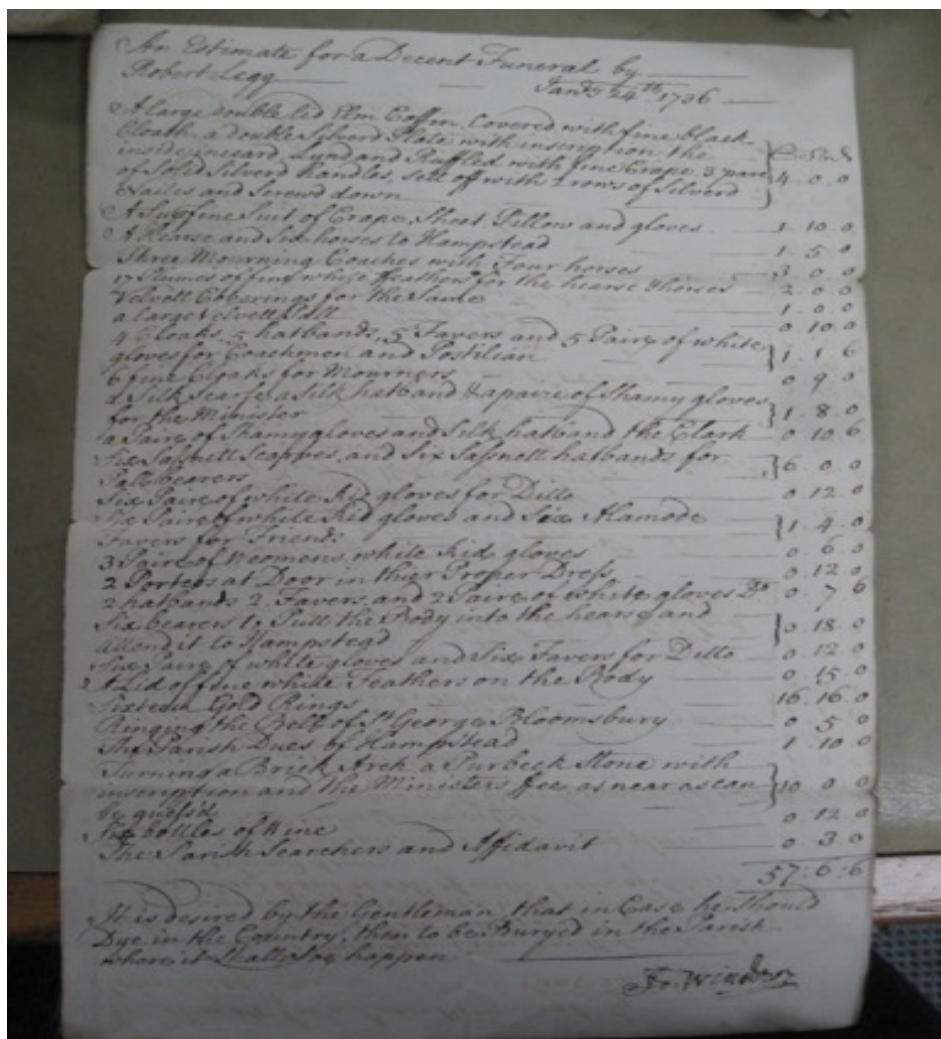 An Estimate for a Decent Funeral by
Robert Legg Janry 24th 1736
A large double lid Elm Coffin, Covered with fine black
Cloath a double Silverd Plate with inscription, the
inside inceard Lynd and Ruffled with fine Crape 3 pare
of Solid Silverd handles, sett off with 2 rows of Silverd 4 0 0
Nailes and Screwd down
A Supfine Suit of Crape, Sheet Pillow and gloves 1 10 0
A Hearse and Six horses to Hampstead 1 5 0
Three Mourning Coaches with Four horses 3 0 0
17 Plumes of fine white ffeathers for the hearse & horses 2 0 0
Velvett Covverings for the Same 1 0 0
a large Velvett Pall 0 10 0
4 Cloaks, 5 hatbands, 5 Favers and 5 Pairs of white
gloves for Coachmen and Postilian 1 1 6
6 fine Cloaks for Mourners 0 9 0
a Silk Scarfe a Silk hatband & a paire of Shamy gloves
for the Minister 1 8 0
a Paire of Shamy gloves and Silk hatband the Clark 0 10 6
Six Sassnett Scarves, and Six Sassnett hatbands for
Pallbearers 6 0 0
Six Paire of white Kid gloves for Ditto 0 12 0
Six Paire of white Kid gloves and Six Alamode
Favers for Friends 1 4 0
3 Paire of Weomens white Kid gloves 0 6 0
2 Porters at Door in thier Proper Dress 0 12 0
2 hatbands 2 Favers, and 2 Paire of white gloves Do 0 7 6
Six bearers to Putt the Body into the hearse and
attend it to Hampstead 0 18 0
Six Paire of white gloves and Six Favers for Ditto 0 12 0
A Lid of fine white Feathers on the Body 0 15 0
Sixteen Gold Rings 16 16 0
Ringing the Bell of St George Bloomsbury 0 5 0
The Parish Dues of Hampstead 1 10 0
Turning a Brick Arch a Purbeck Stone with
inscription and the Ministers ffee as near as can 10 0 0
be guess'd
Six bottles of Wine 0 12 0
The Parish Searchers and Affidavit 0 3 0
57:6:6
It is desired by the Gentleman that in Case he Should
Dye in the Country, then to be Buryed in the Parish
where it Shall Soe happen
Jo: Windsor